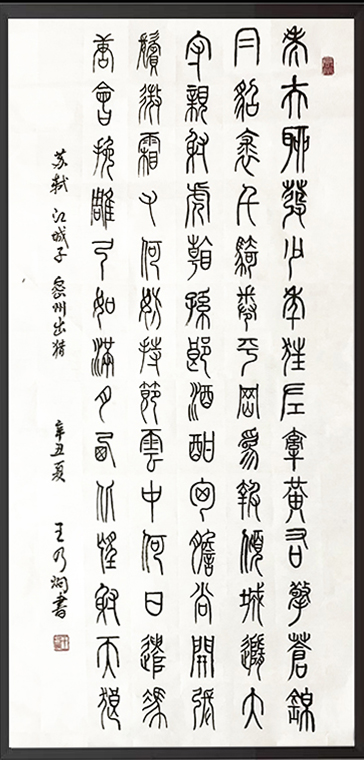 老夫聊發少年狂左牽黃右擎蒼錦
帽貂裘千騎卷平岡爲報傾城隨太
守親射虎看孫郎酒酣胸膽尚開張
鬢微霜又何妨持節雲中何日遣馮
唐會挽雕弓如滿月西北望射天狼
苏轼 江城子 密州出猎 辛丑夏 王乃炯書